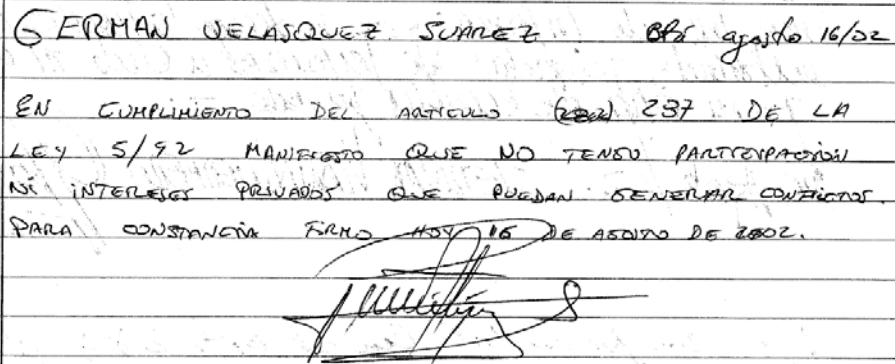 GERMAN VELASQUEZ SUAREZ agosto 16/02
EN CUMPLIMIENTO DEL ARTICULO (282) 287 DE LA
LEY 5/92 MANIFIESTO QUE NO TENGO PARTICIPACIÓN
NI INTERESES PRIVADOS QUE PUEDAN GENERAR CONFLICTOS.
PARA CONSTANCIA FIRMO HOY 16 DE AGOSTO DE 2002.